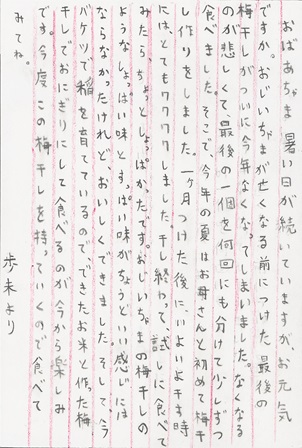 おばあちゃま 暑い日が続いていますがお元気
ですか。おじいちゃまが亡くなる前につけた最後の
梅干しがついに今年なくなってしまいました。なくなる
のが悲しくて最後の一個を何回にも分けて少しずつ
食べました。そこで、今年の夏はお母さんと初めて梅干
し作りをしました。一ヶ月つけた後に、いよいよ干す時
にはとてもワクワクしました。干し終わって、試しに食べて
みたら、ちょっとしょっぱかったです。おじいちゃまの梅干しの
ようなしょっぱい味とすっぱい味がちょうどいい感じには
ならなかったけれど、おいしくできました。そして、今
バケツで稲を育てているので、できたお米と作った梅
干しでおにぎりにして食べるのが今から楽しみ
です。今度この梅干しを持っていくので食べて
みてね。
歩未より